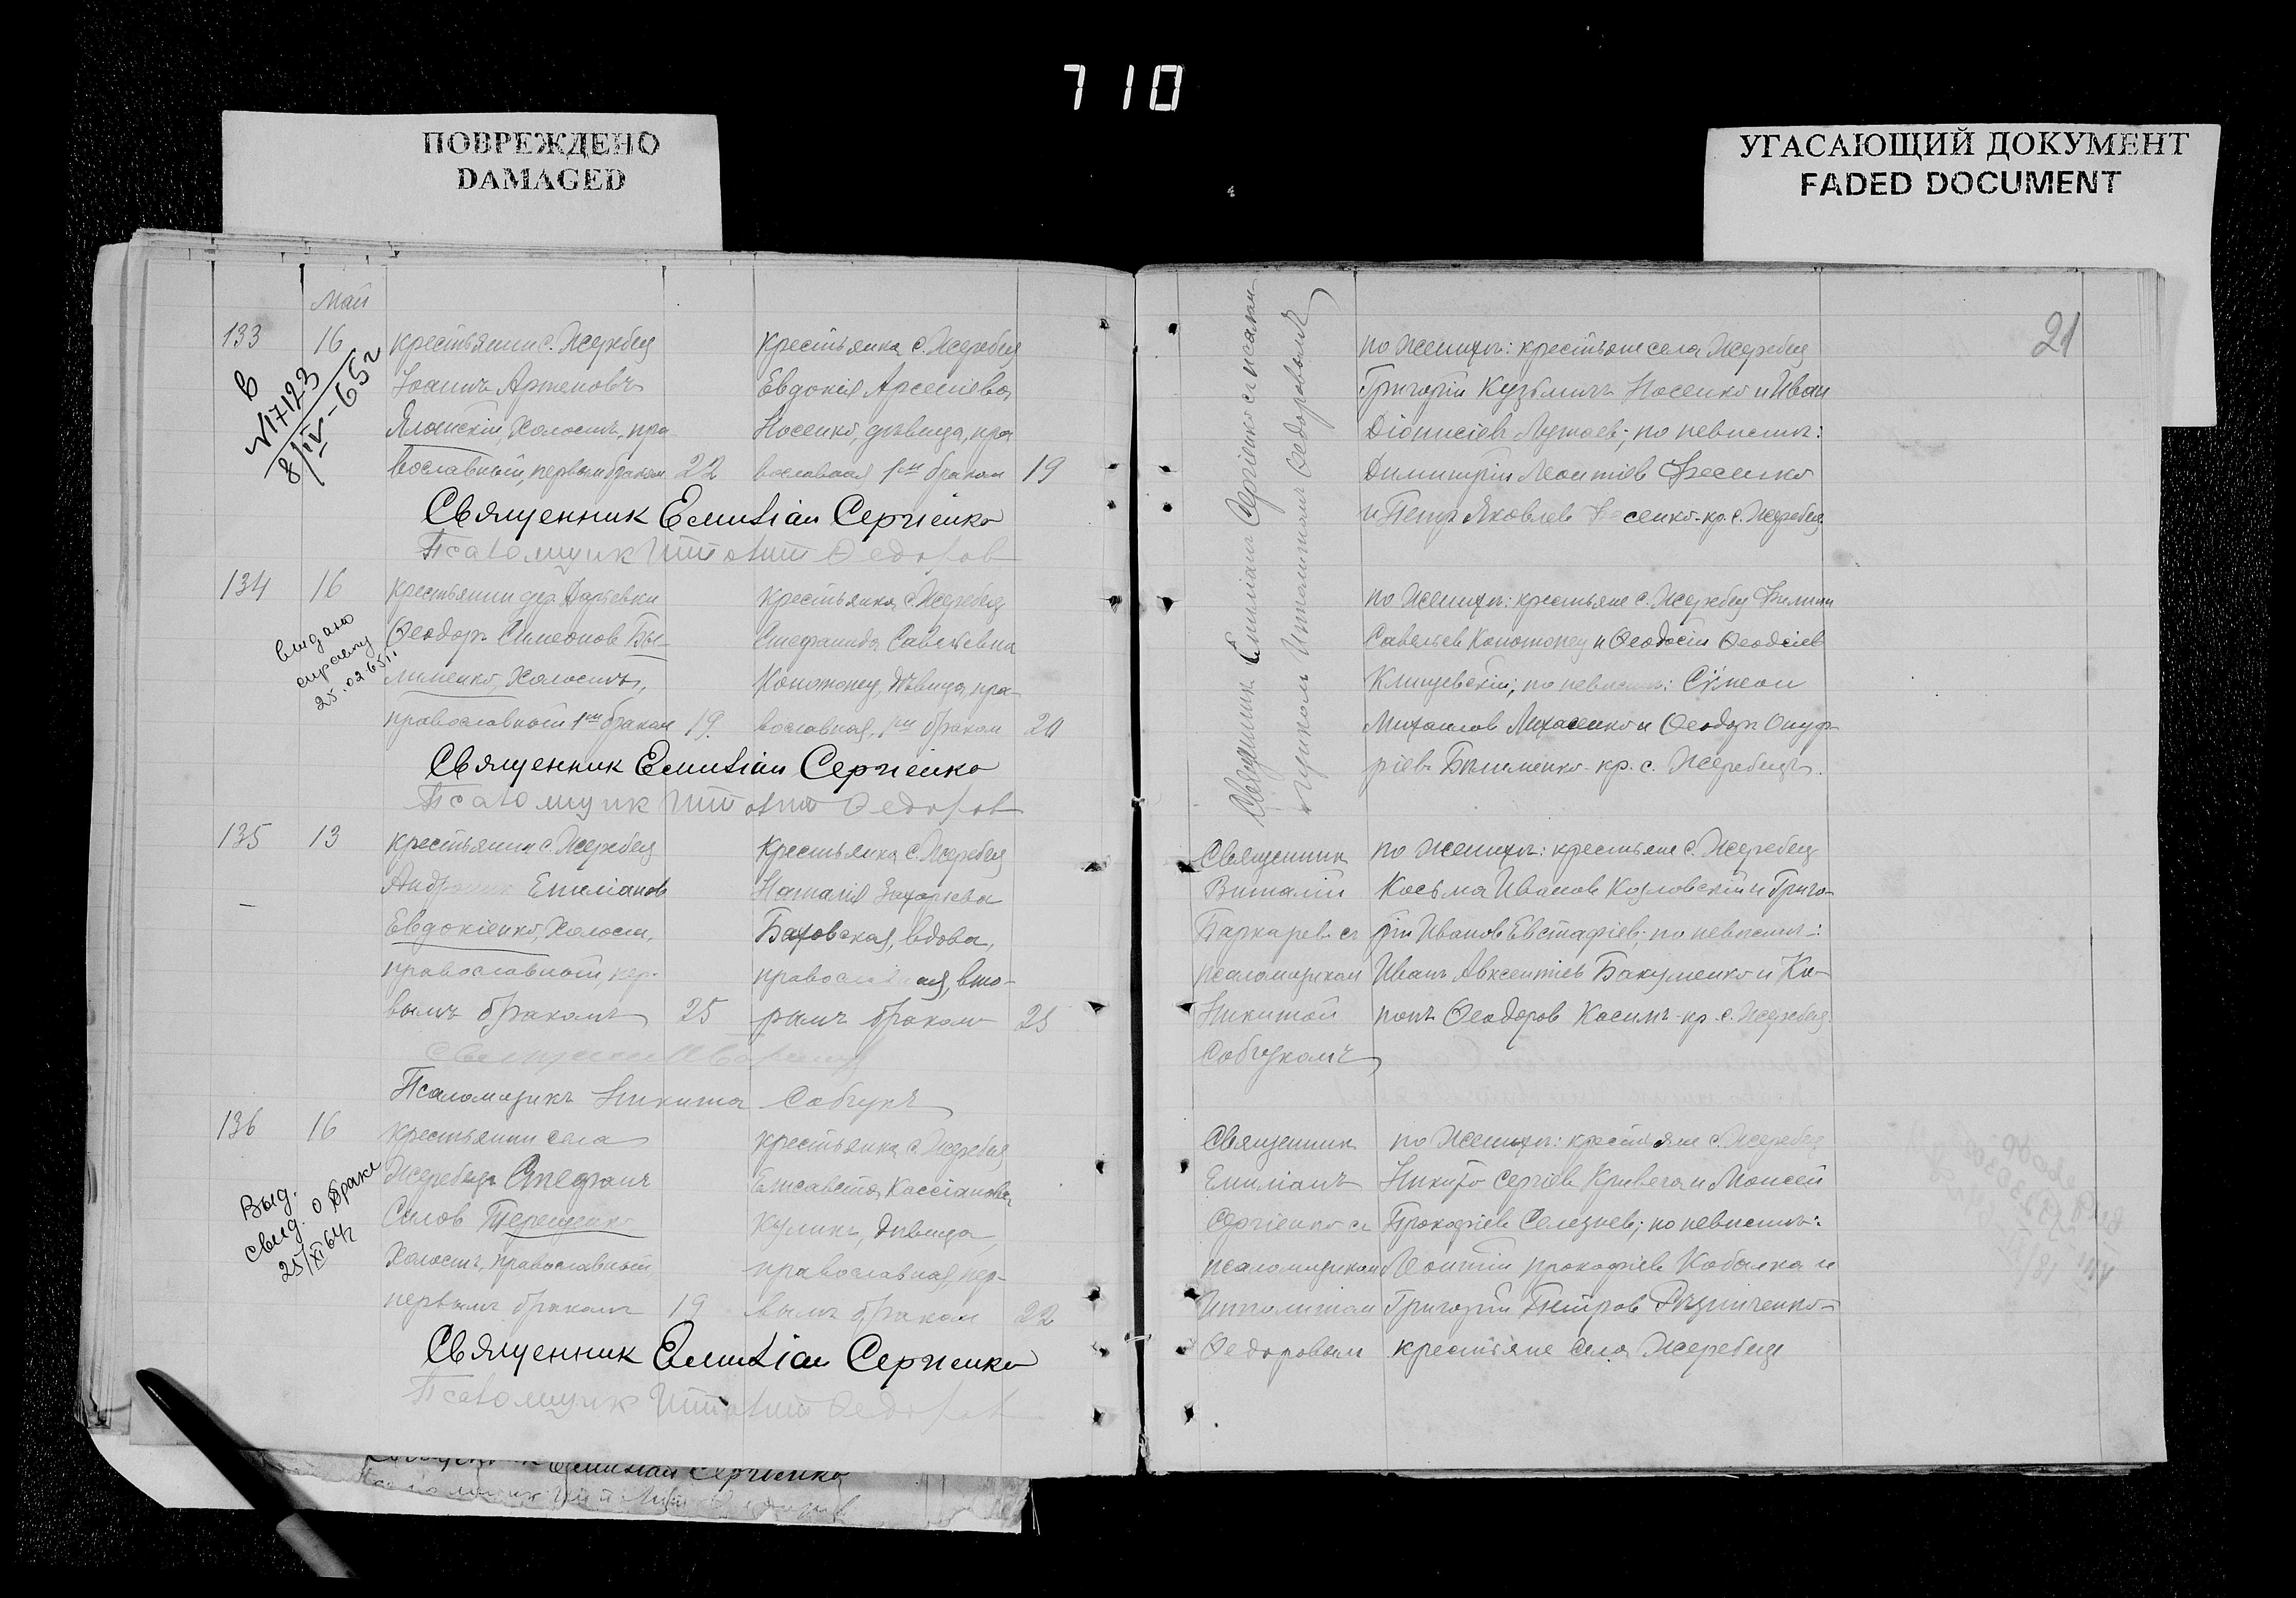 710
ПОВРЕЖДЕНО
DAMAGED
УГАСАЮЩИЙ ДОКУМЕНТ
FADED DOCUMENT
Май
133
16
в
№17123
8/IV-65г
крестьянин с. Жеребец
Іоаннъ Артемовъ
холостъ, пра-
вославный, первым браком
22
крестьянка с. Жеребец
Евдокія Арсеніева
Носенко, дѣвица, пра
вославная 1ым браком
19
Священник Емиліан Сергіенко
Псаломщик Ипполит Федоров
134
16
выдано
справку
25.02.65г.
крестьянин дер. Дарьевки
Ѳеодоръ Симеонов Бы-
лименко, холостъ,
православный 1ым браком
19.
крестьянка с. Жеребец
Стефанида Савельевна
Кономонец, дѣвица, пра-
вославная, 1ым браком
20
Священник Емиліан Сергіенко
Псаломщик Ипполит Федоров
135
13
крестьянин с. Жеребец
Емиліанов
Евдокіенко, холост,
православный, пер-
вымъ бракомъ
25
крестьянка с. Жеребец
Наталія Захарьева
Баховская, вдова,
православная, вто-
рымъ браком
25
Псаломщикъ Никита Собчукъ
136
16
Выд.
свид. о браке
25/XI 64г
крестьянин села
Жеребца Стефанъ
Силов Терещенко
холостъ, православный,
первымъ бракомъ
19
крестьянка с. Жеребец
Елисавета Кассіанова
Куликъ, дѣвица,
православная, пер-
вымъ браком
22
Священник Емиліан Сергіенко
Псаломщик Ипполит Федоров
Священник Емиліан Сергіенко с псалом
щиком Ипполитом Ѳедоровымъ
21
по женихѣ: крестьяне села Жеребец
Григорій Кузьмичъ Носенко и Иван
Діонисіевъ; по невѣстѣ:
Димитрій Леонтіев Фесенко
и Петр Яковлев сенко-кр. с. Жеребец
по женихѣ: крестьяне с. Жеребец Филипп
Савельев Кономонец и Ѳеодосій Ѳеодсіев
Клищевскій; по невѣстѣ: Сѵмеон
Михаилов Михасенко и Ѳеодоръ Онуф-
ріевъ Былименко-кр. с. Жеребецъ.
Священник
Виталій
с
псаломщиком
Никитой
Собчукомъ
по женихѣ: крестьяне с. Жеребец
Косьма Иванов Козловскій и Григо-
рій Иванов Евстафіевъ; по невѣстѣ:
Иванъ Авксентіев Бакуменко и Ка-
понъ Ѳеодоров Касимъ-кр. с. Жеребец
Священник
Емиліанъ
Сергіенко с
псаломщиком
Ипполитом
Ѳедоровым
по женихѣ: крестьяне с. Жеребец
Никита Сергіев Кривега и Моисей
Прокофіевъ Селезнев; по невѣстѣ:
Леонтій Прокофіев Кобылка и
Григорій Петров Рѣзниченко-
крестьяне села Жеребец
Емиліан Сергіенко